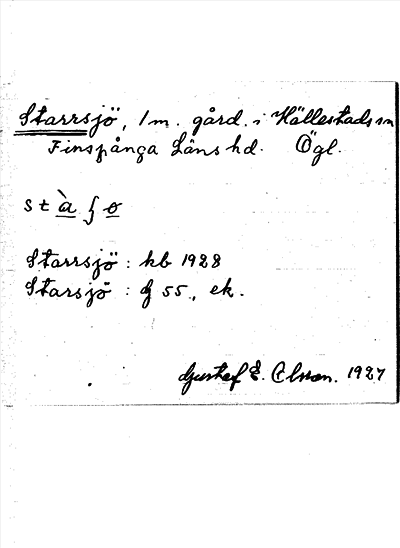 Starrsjö, 1 m. gård. i Hällestads sn
Finspånga Läns hd. Ögl.
st à ʃ ø
Starrsjö : kb 1928
Starsjö : dj 55., ek.
Gustaf E. Olsson. 1927